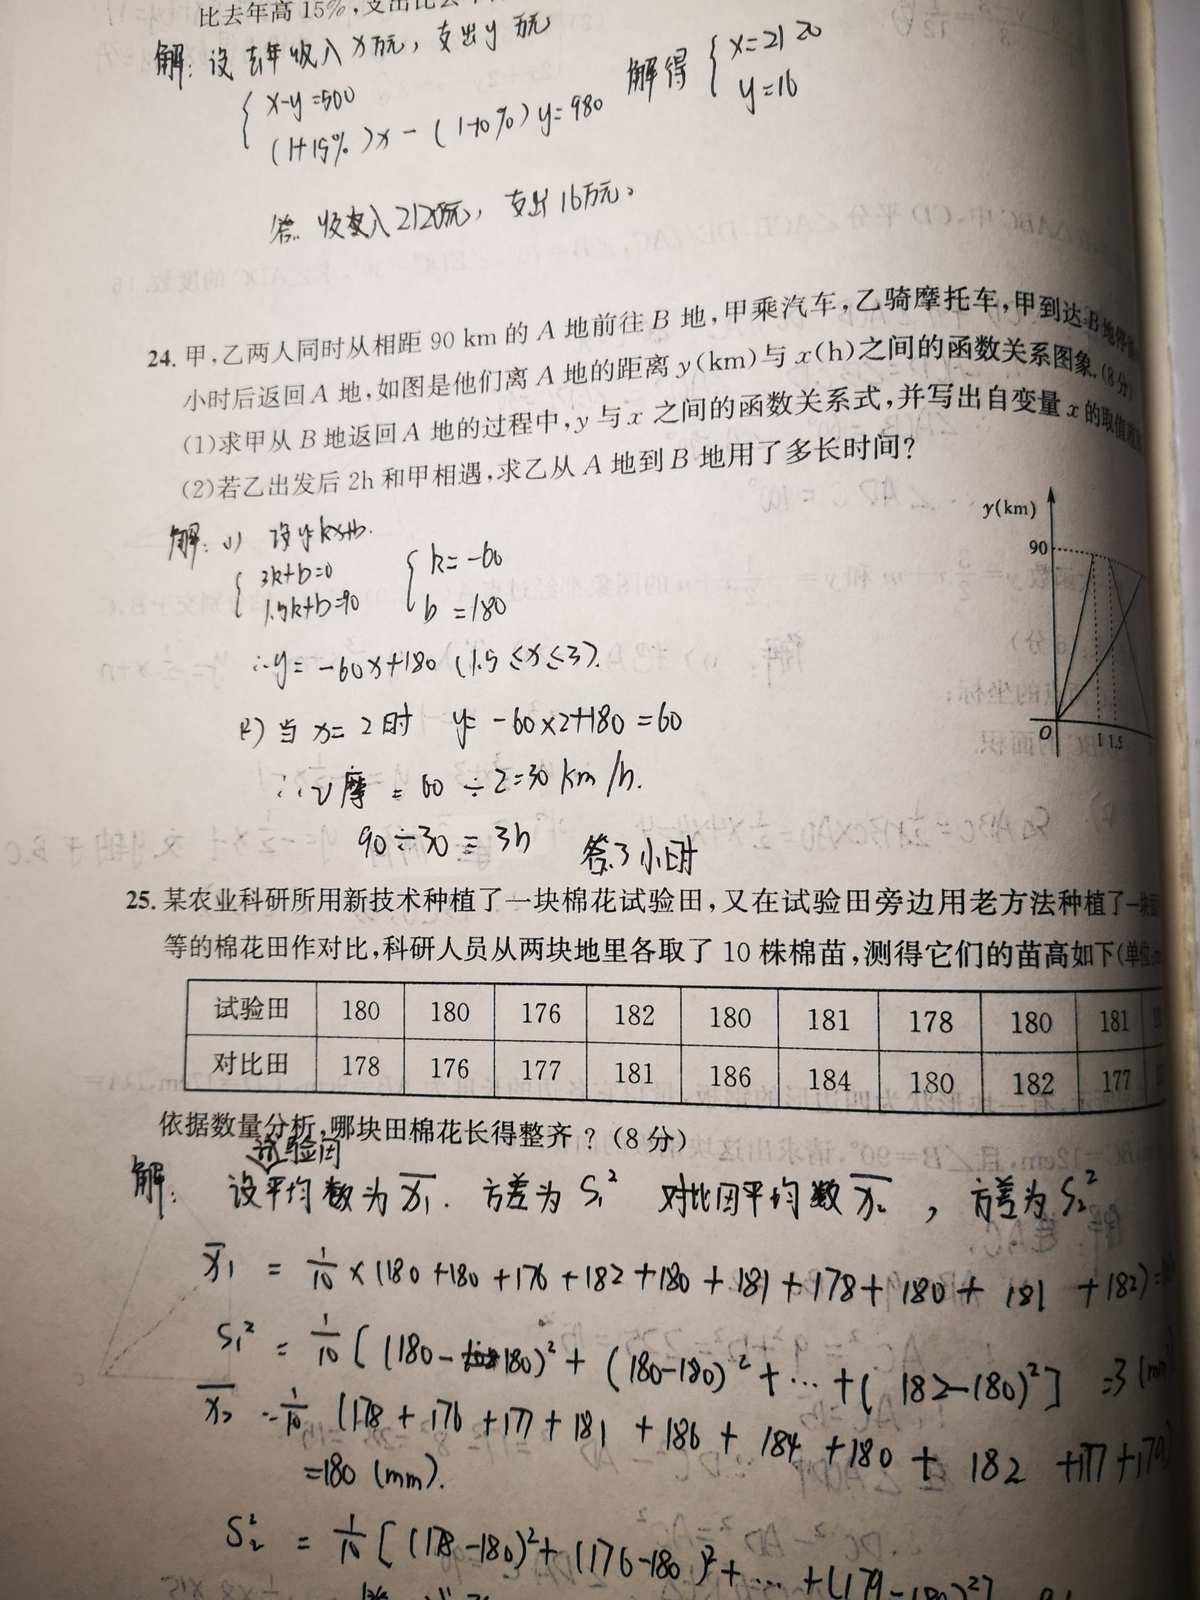 比去年高15%,支出比去
解:设去年收入x万元,支出y万元
x-y=500
(1+15%)x-(1-10%)y=980
解得 x=2120
y=16
答.收入2120万元,支出16万元。
24.甲,乙两人同时从相距90 km的A地前往B地,甲乘汽车,乙骑摩托车,甲到达B地停
小时后返回A地,如图是他们离A地的距离y(km)与x(h)之间的函数关系图象.(8分)
(1)求甲从B地返回A地的过程中,y与x之间的函数关系式,并写出自变量x的取值
(2)若乙出发后2h和甲相遇,求乙从A地到B地用了多长时间?
y(km)
90
O 1 1.5
解:(1) 设y=kx+b.
3k+b=0
1.5k+b=90
k=-60
b=180
∴y=-60x+180 (1.5≤x≤3).
(2)当x=2时 y=-60×2+180=60
∴v摩=60÷2=30km/h.
90÷30=3h 答.3小时
25.某农业科研所用新技术种植了一块棉花试验田,又在试验田旁边用老方法种植了一块
等的棉花田作对比,科研人员从两块地里各取了10株棉苗,测得它们的苗高如下(单位
试验田 180 180 176 182 180 181 178 180 181
对比田 178 176 177 181 186 184 180 182 177
依据数量分析,哪块田棉花长得整齐?(8分)
试验田
解: 设平均数为x̄₁.方差为S₁² 对比田平均数x̄₂,方差为S₂²
x̄₁=1/10×(180+180+176+182+180+181+178+180+181+182)=
S₁²=1/10[(180-180)²+(180-180)²+…+(182-180)²]=3(mm
x̄₂=1/10(178+176+177+181+186+184+180+182+177+179)
=180(mm).
S₂²=1/10[(178-180)²+(176-180)²+…+(179-180)²]